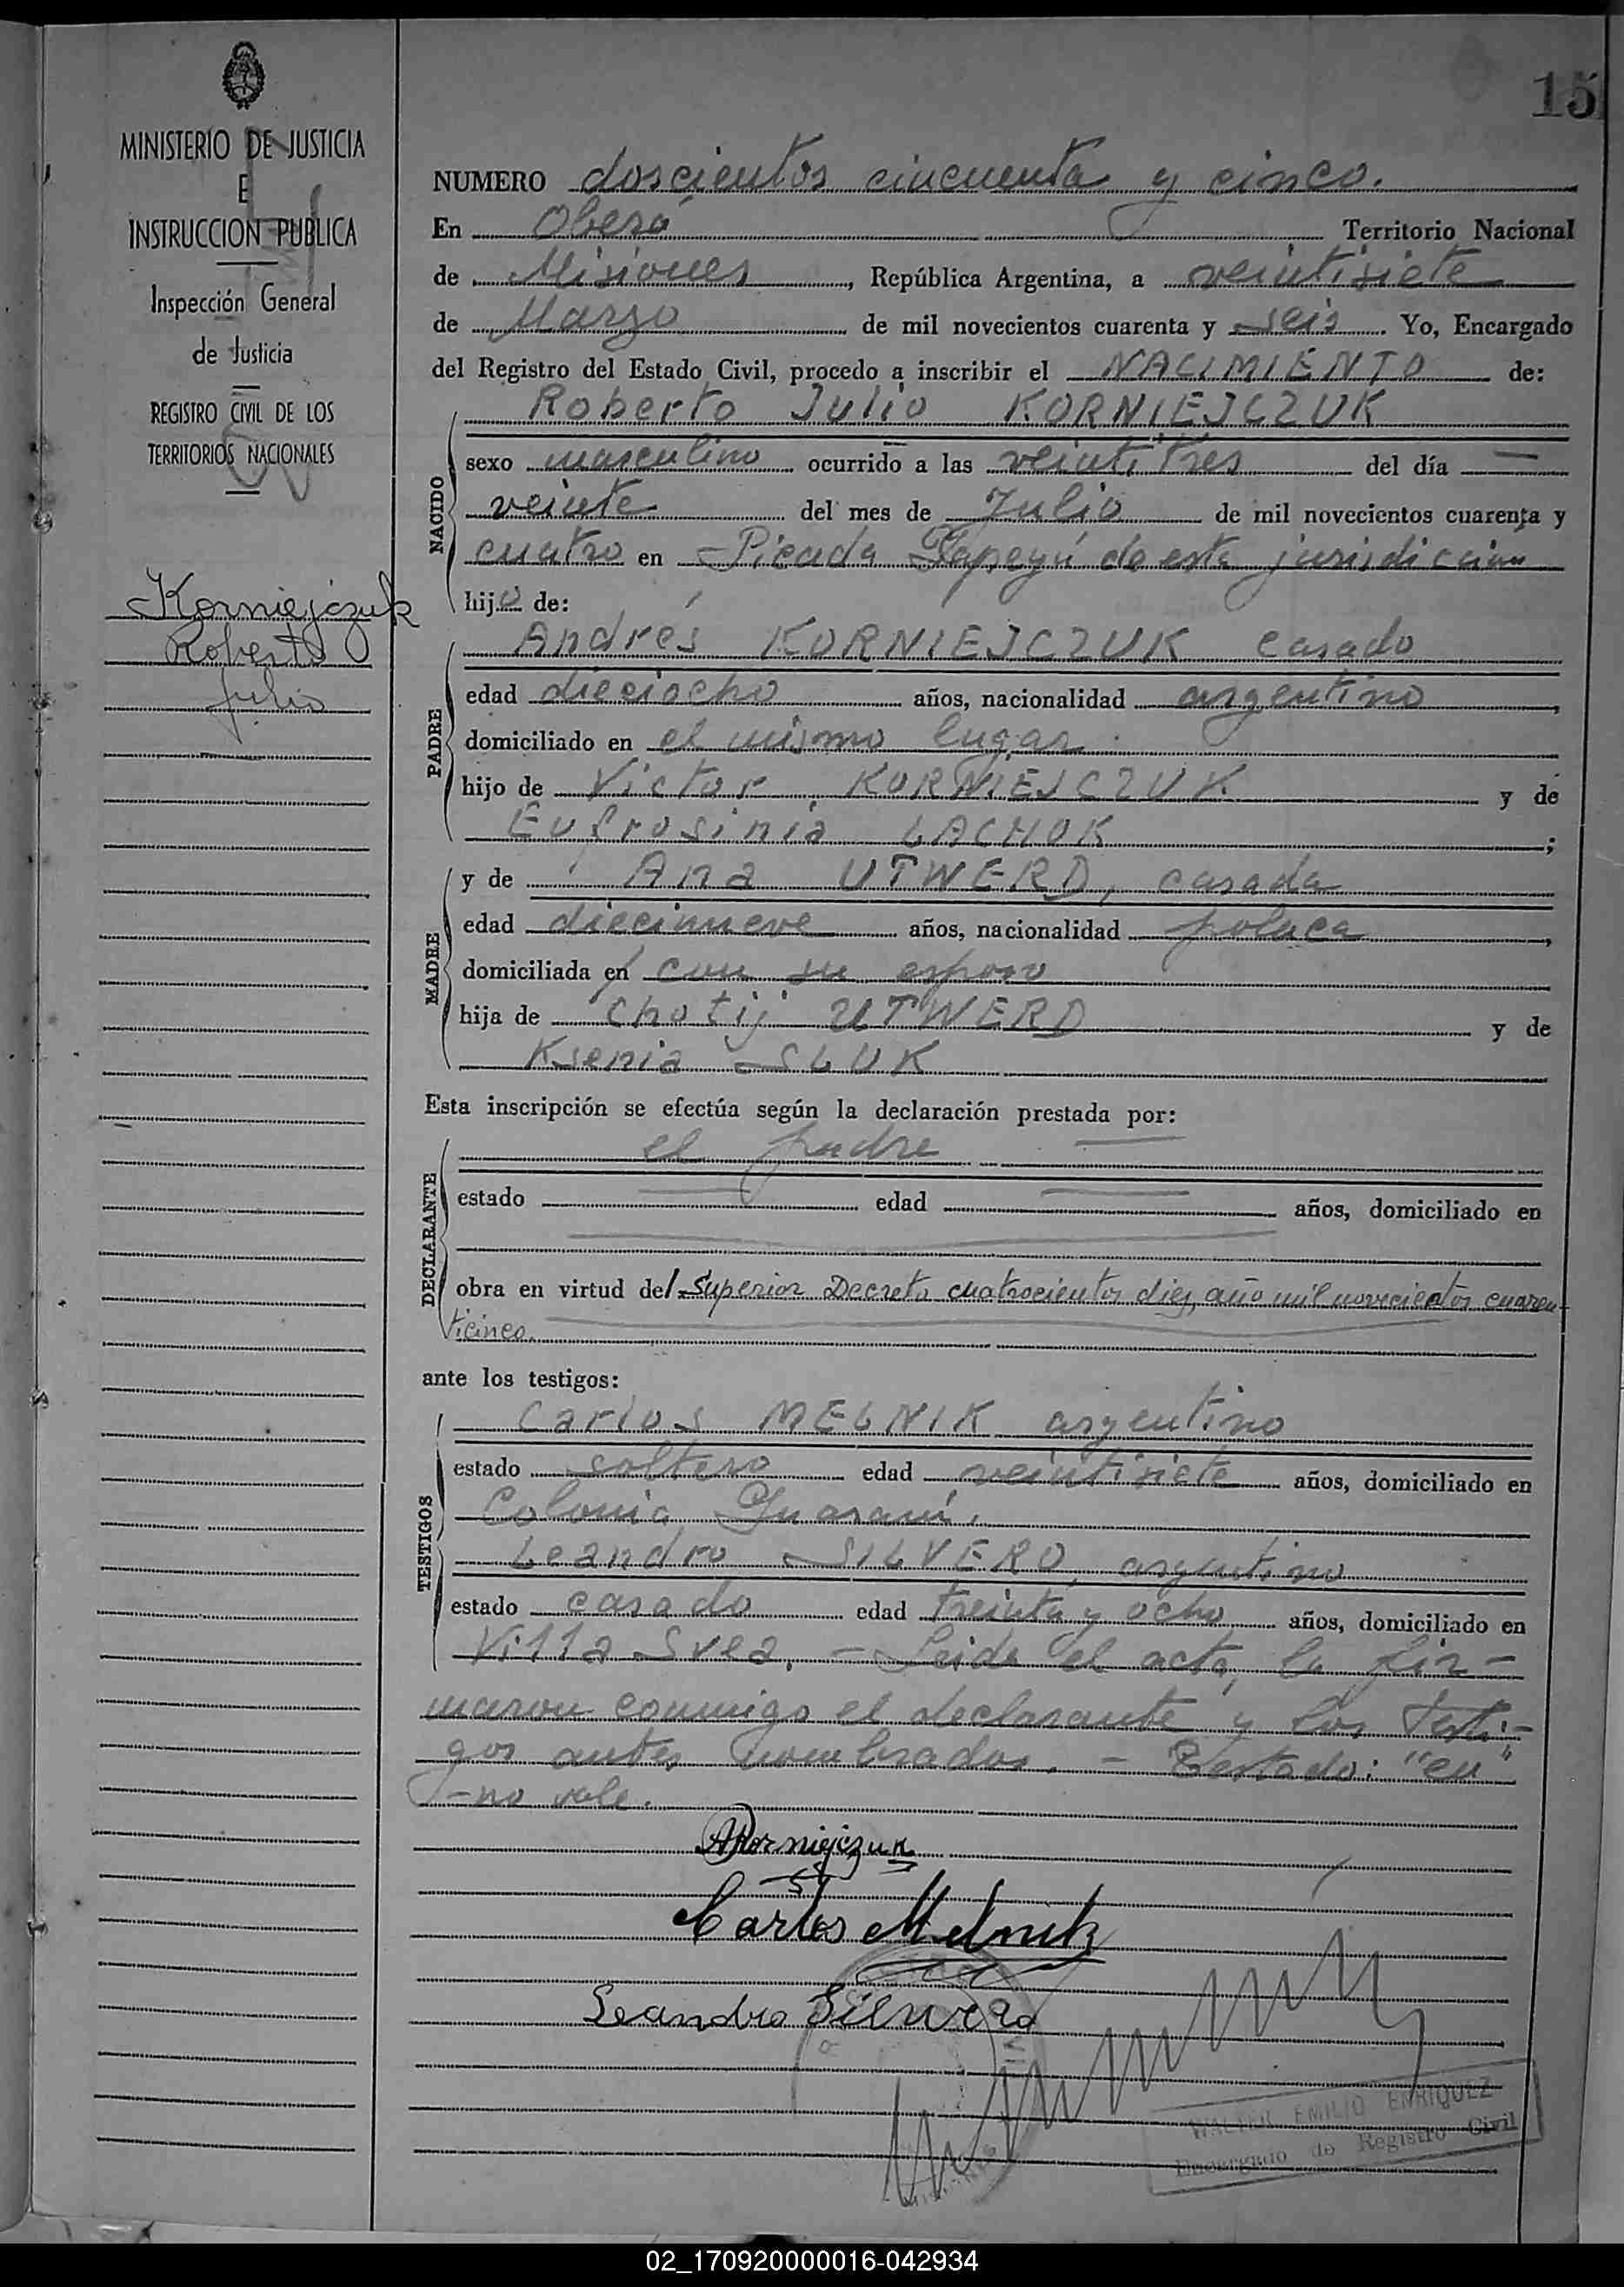 15
MINISTERIO DE JUSTICIA
E
INSTRUCCION PUBLICA
Inspección General
de Justicia
REGISTRO CIVIL DE LOS
TERRITORIOS NACIONALES
Korniejczuk
Roberto
Julio
NUMERO doscientos cincuenta y cinco.
En Oberá Territorio Nacional
de Misiones, República Argentina, a veintisiete
de Marzo de mil novecientos cuarenta y seis. Yo, Encargado
del Registro del Estado Civil, procedo a inscribir el NACIMIENTO de:
NACIDO
Roberto Julio KORNIEJCZUK
sexo masculino ocurrido a las veintitres del día —
veinte del mes de Julio de mil novecientos cuarenta y
cuatro en Picada Yapeyú de esta jurisdiccion
hijo de:
PADRE
Andrés KORNIEJCZUK casado
edad dieciocho años, nacionalidad argentino,
domiciliado en el mismo lugar.
hijo de Victor KORNIEJCZUK y de
Eufrosinia LACHUK;
MADRE
y de Ana UTWERD, casada
edad diecinueve años, nacionalidad polaca,
domiciliada en con su esposo
hija de Chotij UTWERD y de
Ksenia SLUK
Esta inscripción se efectúa según la declaración prestada por:
DECLARANTE
el padre
estado edad años, domiciliado en
obra en virtud del Superior Decreto cuatrocientos diez, año mil novecientos cuaren-
ticinco.
ante los testigos:
TESTIGOS
Carlos MELNIK argentino
estado soltero edad veintisiete años, domiciliado en
Colonia Guaraní.
Leandro SILVERO, argentino
estado casado edad treinta y ocho años, domiciliado en
Villa Svea. - Leida el acta, la fir-
maron conmigo el declarante y los testi-
gos antes nombrados. - Testado: "en"
-no vale.
AKorniejczuk
Carlos Melnik
Leandro Silvero
WALTER EMILIO ENRIQUEZ
Encargado de Registro Civil
02_170920000016-042934